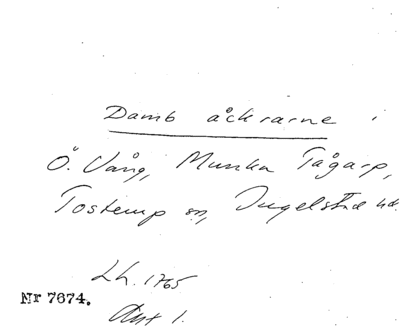 Damb åckrarne i
Ö. Vång, Munka Tågarp,
Tostemp sn, Ingelstad hd.
Lh. 1765
Akt 1.
Nr 7674.